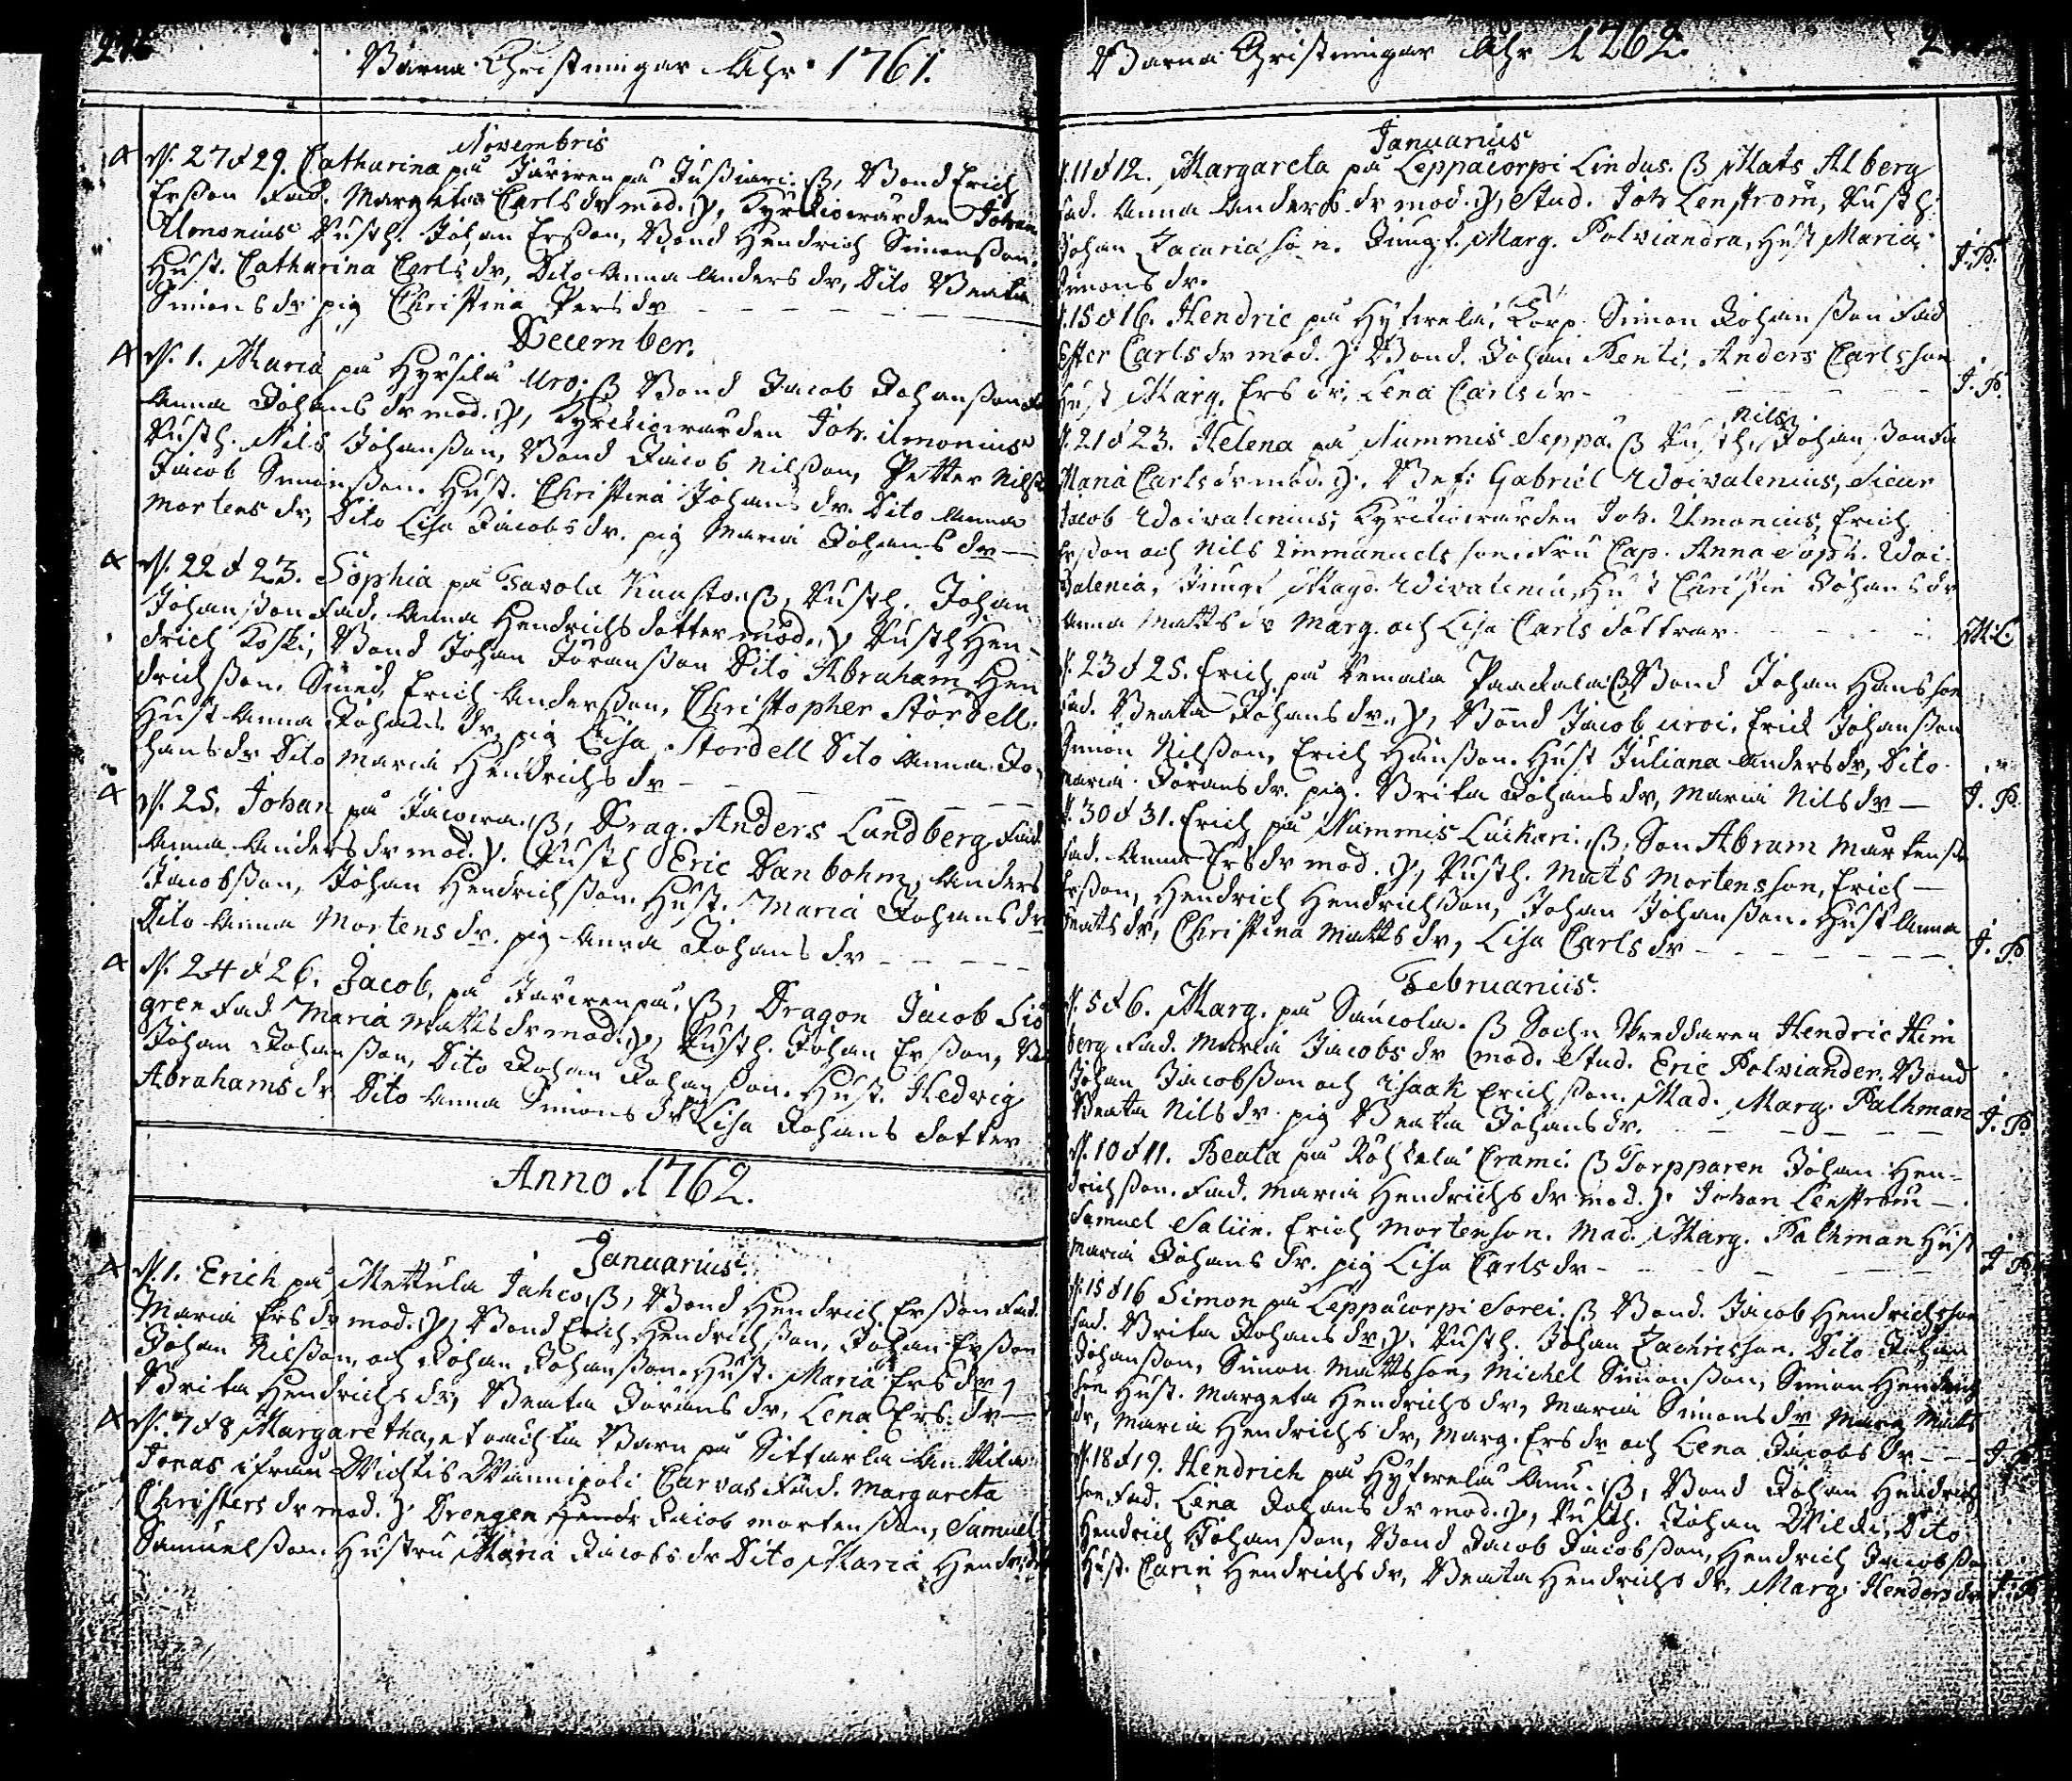 Barna Christningar Åhr 1761.
Novembris
N. 27 d 29. Catharina på Järfvenpä Jussiari. ß, Bond Erich
Ersson Fad. Margeta Carls dr mod. Kyrckiowärden Johan
Ilmonius Rusth. Johan Ersson, Bond Hendrich Simonsson.
Hust. Catharina Carls dr, Dito Anna Anders dr, Dito Beata
Simons dr pig Christina Pers dr
December.
N. 1. Maria på Hyrsilä Uroi ß Bond Jacob Johansson
Anna Johans dr mod. Kyrckiowärden Joh. Ilmonius
Rusth. Nils Johansson, Bond Jacob Nilsson, Petter Nilss
Jacob Simonsson. Hust. Christina Johans dr. Dito Anna
Mortens dr, Dito Lisa Jacobs dr. pig Maria Johans dr
N. 22 d 23. Sophia på Tavola Knasto ß, Rusth. Johan
Johansson Fad. Anna Hendrichs dotter mod. Rusth Hen-
drich Koski, Bond Johan Göransson Dito Abraham Hen
drichsson. Smed Erich Andersson, Christopher Stordell.
Hust Anna Johans dr, pig Lisa Stordell Dito Anna Jo-
hans dr Dito Maria Hendrichs dr
N. 25. Johan på Jacova. ß, Drag. Anders Lundberg Fad
Anna Anders dr mod. Rusth Eric Danbohm, Anders
Jacobsson, Johan Hendrichsson. Hust. Maria Johans dr
Dito Anna Mortens dr. pig Anna Johans dr
N. 24 d 26. Jacob, på Järfvenpä. ß, Dragon Jacob Siö
gren Fad Maria Matts dr mod. Rusth. Johan Ersson, B
Johan Johansson, Dito Johan Johansson. Hust. Hedvig
Abrahams dr Dito Anna Simons dr Lisa Johans dotter
Anno 1762.
Januarius.
N. 1. Erich på Mettula Jahco, ß, Bond Hendrich Ersson Fad.
Maria Ers dr mod. Bond Erich Hendrichsson, Johan Ersson
Johan Nilsson, och Johan Johansson. Hust. Maria Ers dr,
Brita Hendrichs dr, Beata Jörans dr, Lena Ers dr
N. 7 d 8 Margaretha, et oächta Barn på Sittarla Anttila
Jonas ifrån Wichtis Wannipoli Carvas Fad. Margareta
Christers dr mod. Drengen Jacob Mortensson, Samuel
Samuelsson. Hustru Maria Jacobs dr Dito Maria Hendrichs
Barna Christningar Åhr 1762.
Januarius
11 d 12. Margareta på Leppäcorpi Lindus. ß Mats Alberg
fad. Anna Anders dr mod. Stud. Joh Lenström, Rusth
Johan Zacariason. Jungf. Marg. Polviandra, Hust Maria
Simons dr. J. P.
15 d 16. Hendric på Hyfvelä, Korp. Simon Johansson Fad
Ester Carls dr mod. Bond. Johan Renti, Anders Carlsson
Hust Marg. Ers dr, Lena Carls dr - J. P.
Nils
21 d 23. Helena på Nummis Seppä. ß Rusth. Johansson Fa
Maria Carls dr mod. Bef: Gabriel Woivalenius, Sieur
Jacob Woivalenius, Kyrckiowärden Joh. Ilmonius, Erich
Ersson och Nils Immanuelsson. Fru Cap. Anna Soph. Woi-
valenia, Jungf Magd. Woivalenia, Hust Christin Johans dr
Anna Matts dr Marg. och Lisa Carls döttrar M: C.
23 d 25. Erich på Remala Paackala ß Bond Johan Hansson
Fad. Beata Johans dr. Bond Jacob Uroi, Erich Johansson
Simon Nilsson, Erich Hansson. Hust Juliana Anders dr, Dito
Maria Jörans dr. pig. Brita Johans dr, Maria Nils dr — J. P.
30 d 31. Erich på Nummis Luckari. ß, Son Abram Mårtensso
Fad. Anna Ers dr mod. Rusth. Mats Mortensson, Erich
Ersson, Hendrich Hendrichsson, Johan Johansson. Hust Anna
Mats dr, Christina Matts dr, Lisa Carls dr J. P.
Februarius.
N. 5 d 6. Marg. på Saucola. ß Sochn Skreddaren Hendric Him
berg Fad. Maria Jacobs dr mod. Stud. Eric Polviander. Bond
Johan Jacobsson och Isaak Erichsson. Mad. Marg. Palhman
Beata Nils dr pig Beata Johans dr. J. P.
N. 10 d 11. Beata på Röhkelä Crami. ß Torpparen Johan Hen-
drichsson. Fad. Maria Hendrichs dr mod. Johan Lenström
Samuel Saliin. Erich Mortenson. Mad. Marg. Palhman Hust
Maria Johans dr. pig Lisa Carls dr - J P
N. 15 d 16 Simon på Leppäcorpi Sorri. ß Bond. Jacob Hendrichsson
Fad. Brita Johans dr, Rusth. Johan Zachrisson. Dito Johan
Johansson, Simon Mattsson, Michel Simonsson, Simon Hendrich
son Hust. Margeta Hendrichs dr, Maria Simons dr Marg Matts
dr, Maria Hendrichs dr, Marg. Ers dr och Lena Jacobs dr J. P.
N. 18 d 19. Hendrich på Hyfvelä Anu. ß, Bond Johan Hendrich
son Fad. Lena Johans dr mod. Rusth. Johan Wilcki, Dito
Hendrich Johansson, Bond Jacob Jacobsson, Hendrich Jacobsso
Hust. Carin Hendrichs dr, Beata Hendrichs dr, Marg. Henders dr J. P.